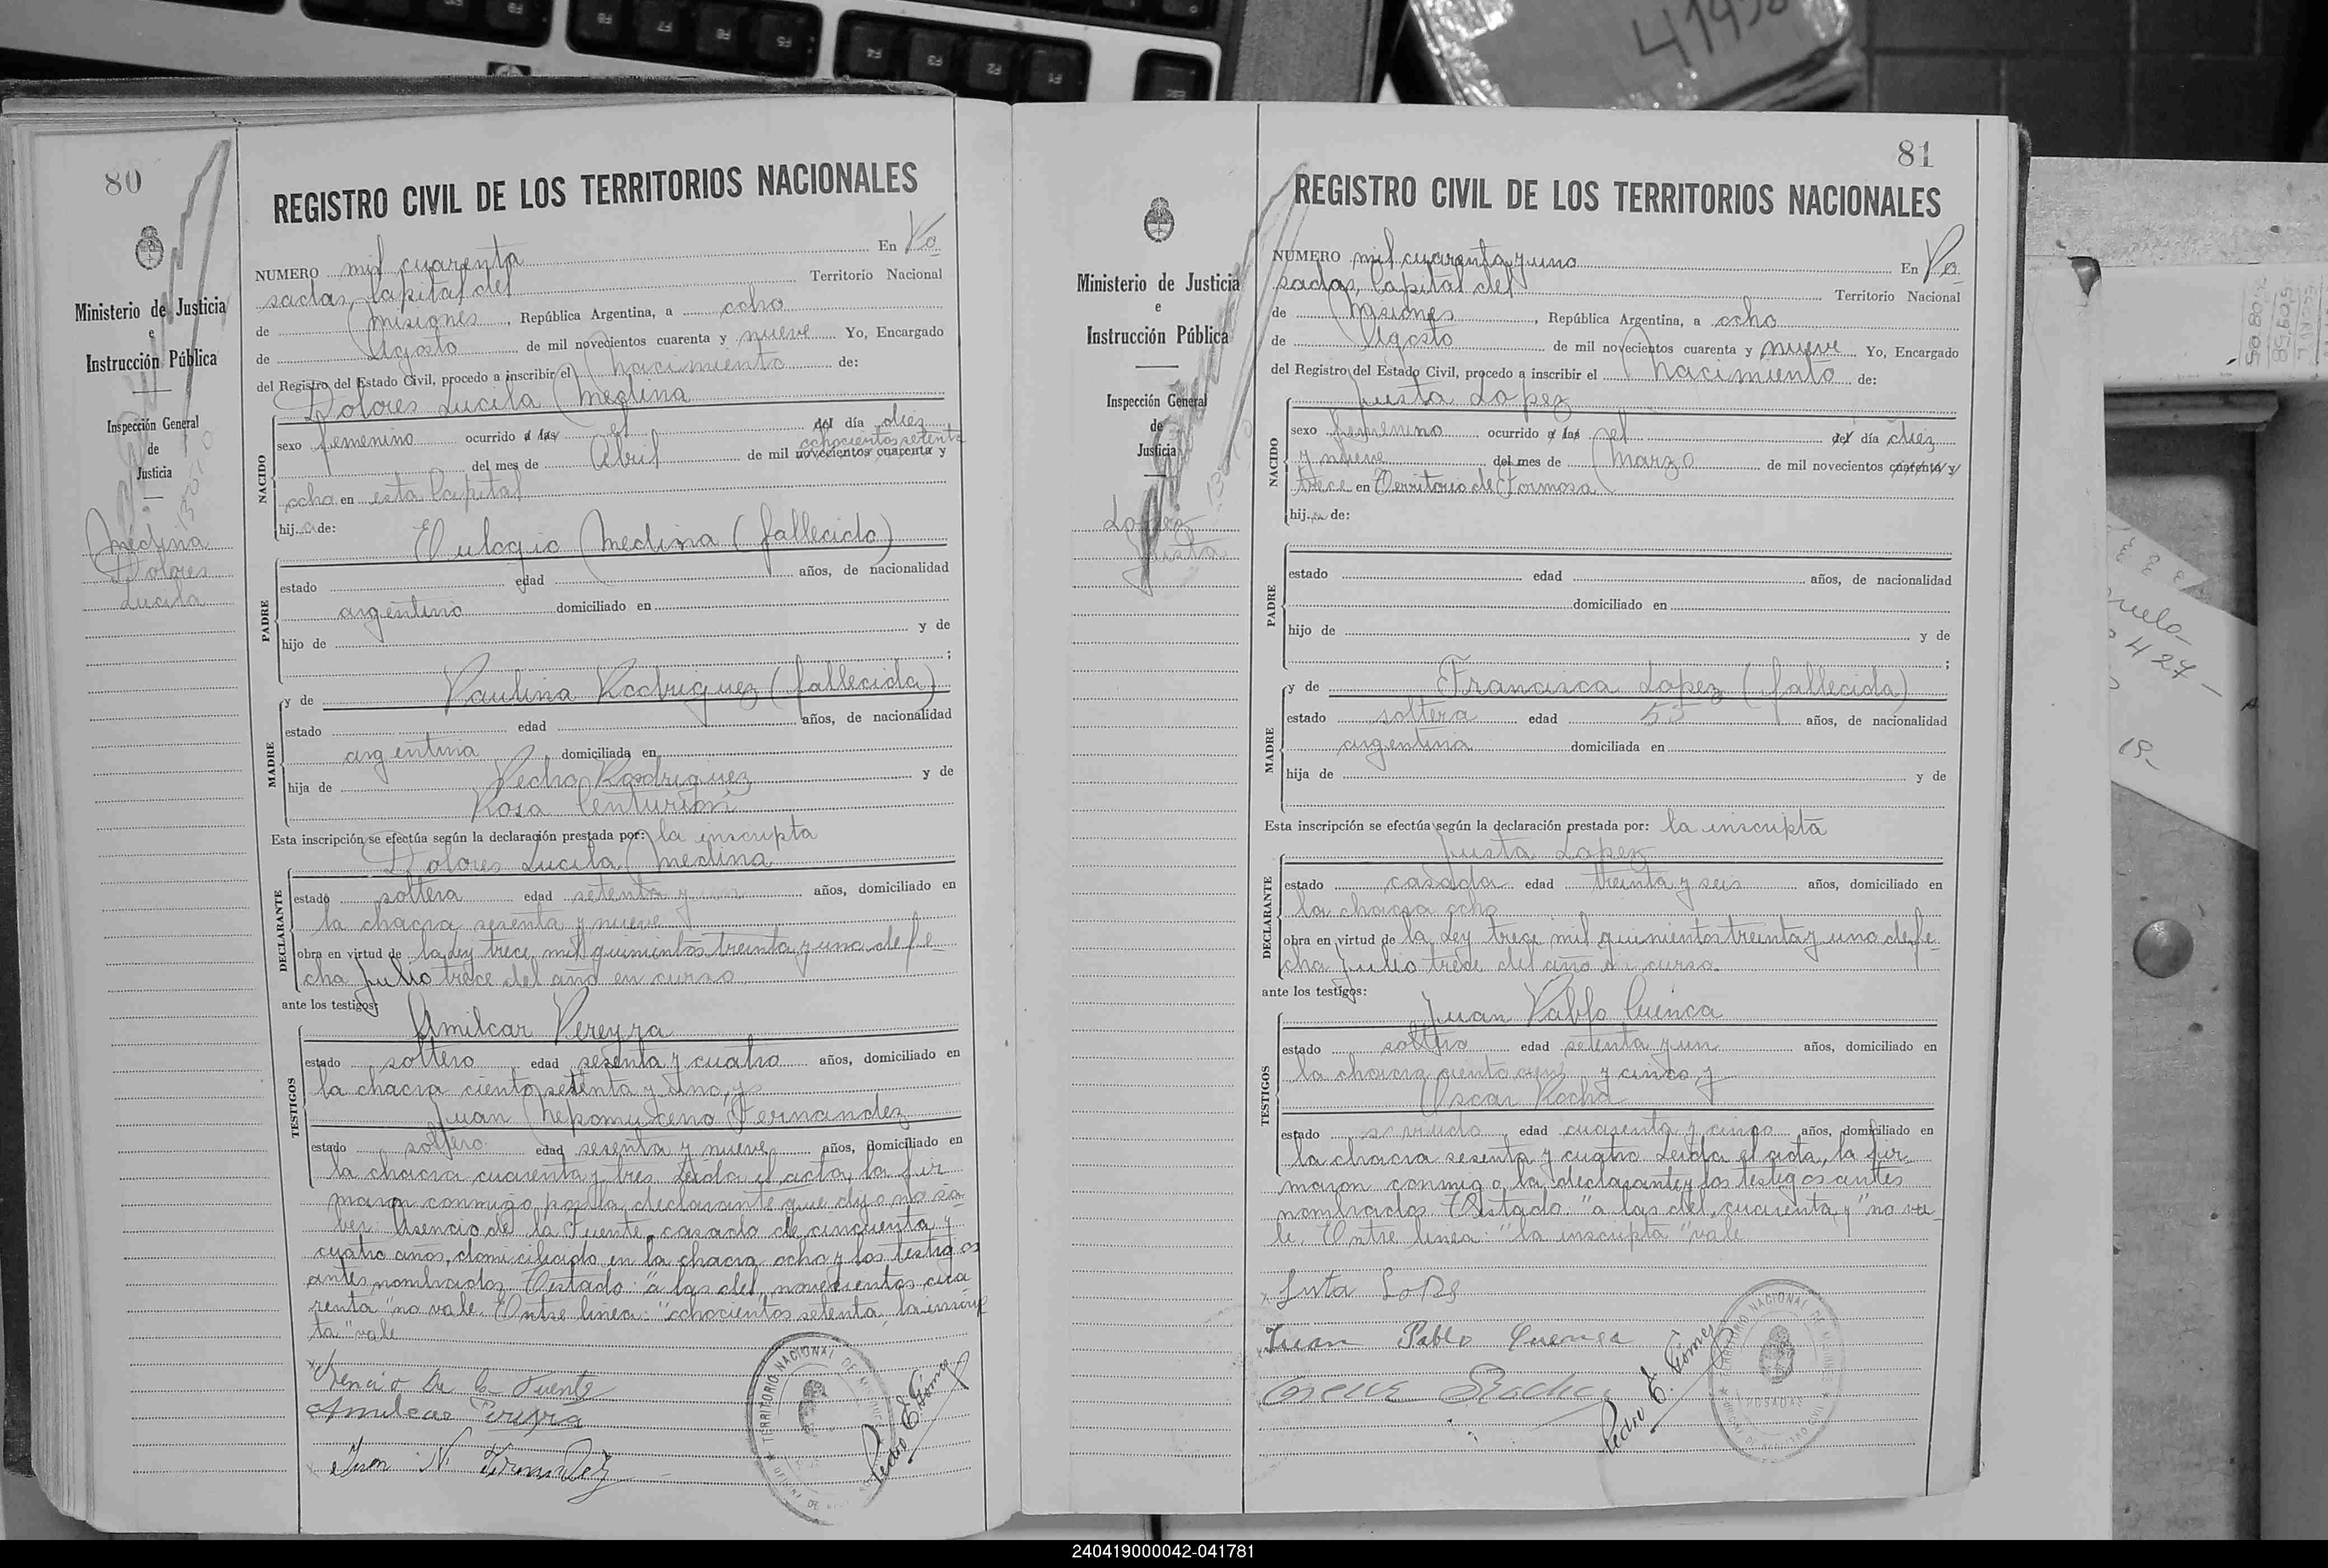 41458
80
REGISTRO CIVIL DE LOS TERRITORIOS NACIONALES
Ministerio de Justicia
e
Instrucción Pública
Inspección General
de
Justicia
Medina
Dolores
Lucila
NUMERO mil cuarenta En Po
sadas, Capital del Territorio Nacional
de Misiones, República Argentina, a ocho
de Agosto de mil novecientos cuarenta y nueve Yo, Encargado
del Registro del Estado Civil, procedo a inscribir el nacimiento de:
Dolores Lucila Medina
NACIDO
sexo femenino ocurrido a las el del día diez
ochocientos setenta
del mes de Abril de mil novecientos cuarenta y
ocho en esta Capital
hija de:
Eulogio Medina (fallecido)
PADRE
estado edad años, de nacionalidad
argentino domiciliado en
hijo de y de
;
y de Paulina Rodriguez (fallecida)
MADRE
estado edad años, de nacionalidad
argentina domiciliada en
hija de Pedro Rodriguez y de
Rosa Centurión
Esta inscripción se efectúa según la declaración prestada por: la inscripta
Dolores Lucila Medina
DECLARANTE
estado soltera edad setenta y un años, domiciliado en
la chacra sesenta y nueve
obra en virtud de la Ley trece mil quinientos treinta y uno de fe-
cha Julio trece del año en curso
ante los testigos:
Amilcar Pereyra
TESTIGOS
estado soltero edad sesenta y cuatro años, domiciliado en
la chacra ciento setenta y uno, y
Juan Nepomuceno Fernandez
estado soltero edad sesenta y nueve años, domiciliado en
la chacra cuarenta y tres. Leida el acta, la fir
maron conmigo por la declarante que dijo no sa-
ber Asencio de la Fuente, casado de cincuenta y
cuatro años, domiciliado en la chacra ocho y los testigos
antes nombrados. Testado: "a las del, novecientos cua
renta" no vale. Entre linea: "ochocientos setenta, la inscrip
ta" vale
Asencio De la Fuente
Amilcar Pereyra
Juan N. Fernandez
Pedro E. Gómez
TERRITORIO NACIONAL DE MISIONES
81
REGISTRO CIVIL DE LOS TERRITORIOS NACIONALES
Ministerio de Justicia
e
Instrucción Pública
Inspección General
de
Justicia
Lopez
Justa
NUMERO mil cuarenta y uno En Po
sadas, Capital del Territorio Nacional
de Misiones, República Argentina, a ocho
de Agosto de mil novecientos cuarenta y nueve Yo, Encargado
del Registro del Estado Civil, procedo a inscribir el nacimiento de:
Justa Lopez
NACIDO
sexo femenino ocurrido a las el del día diez
y nueve del mes de Marzo de mil novecientos cuarenta y
trece en Territorio de Formosa
hija de:
PADRE
estado edad años, de nacionalidad
domiciliado en
hijo de y de
;
y de Francisca Lopez (fallecida)
MADRE
estado soltera edad 55 años, de nacionalidad
argentina domiciliada en
hija de y de
Esta inscripción se efectúa según la declaración prestada por: la inscripta
Justa Lopez
DECLARANTE
estado casada edad treinta y seis años, domiciliado en
la chacra ocho
obra en virtud de la Ley trece mil quinientos treinta y uno de fe-
cha Julio trece del año en curso.
ante los testigos:
Juan Pablo Cuenca
TESTIGOS
estado soltero edad setenta y un años, domiciliado en
la chacra ciento y cinco, y
Oscar Rocha
estado edad cuarenta y cinco años, domiciliado en
la chacra sesenta y cuatro. Leida el acta, la fir-
maron conmigo la declarante y los testigos antes
nombrados. Testado: "a las del, cuarenta y" no va-
le. Entre linea: "la inscripta" vale
Juta LoPes
Juan Pablo Cuenca
Oscar Rocha
Pedro E. Gómez
TERRITORIO NACIONAL DE MISIONES
POSADAS
240419000042-041781